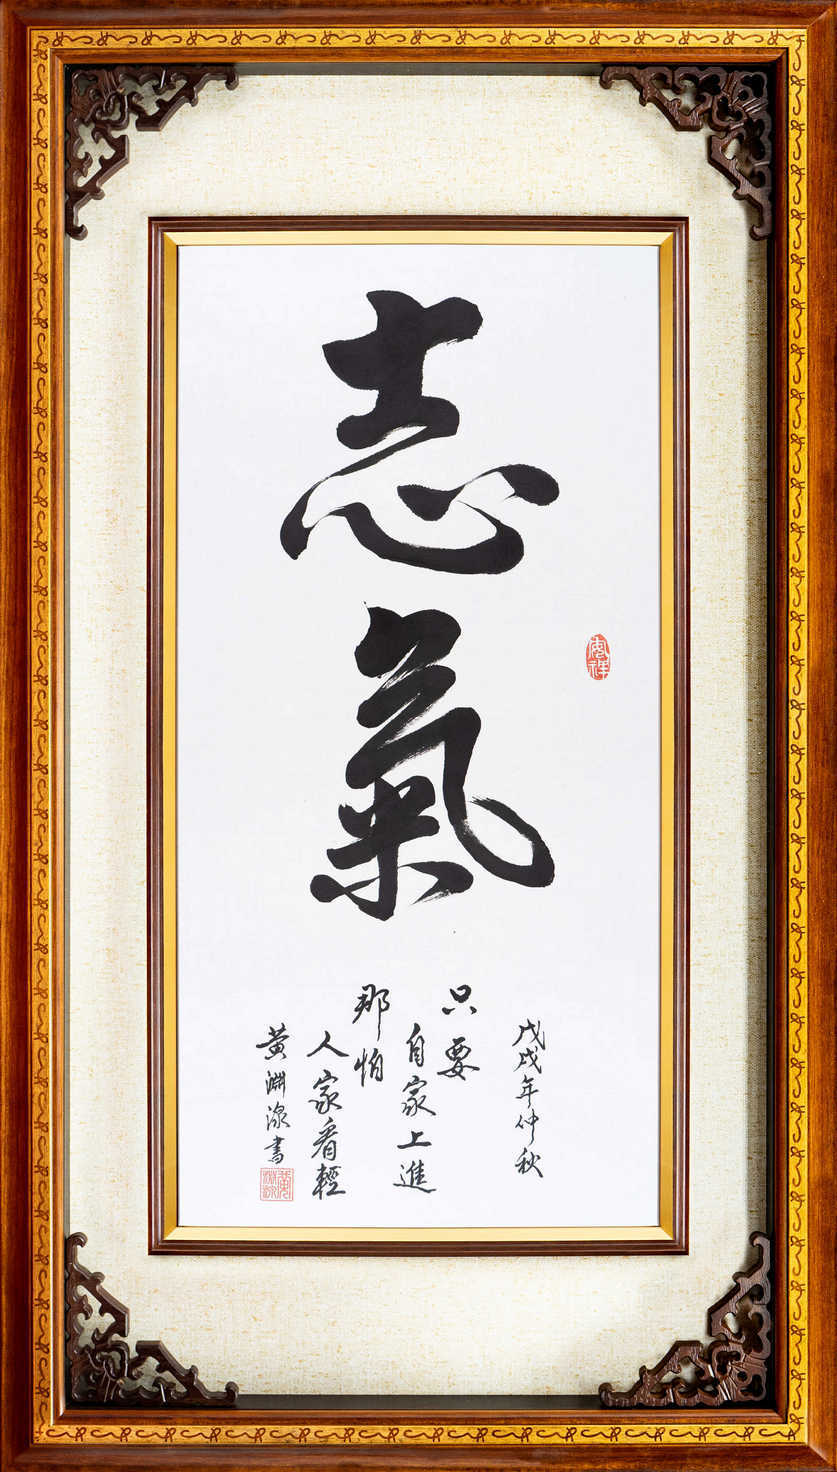 志氣
戊戌年仲秋
只要
自家上進
那怕
人家看輕
黃淵泉書